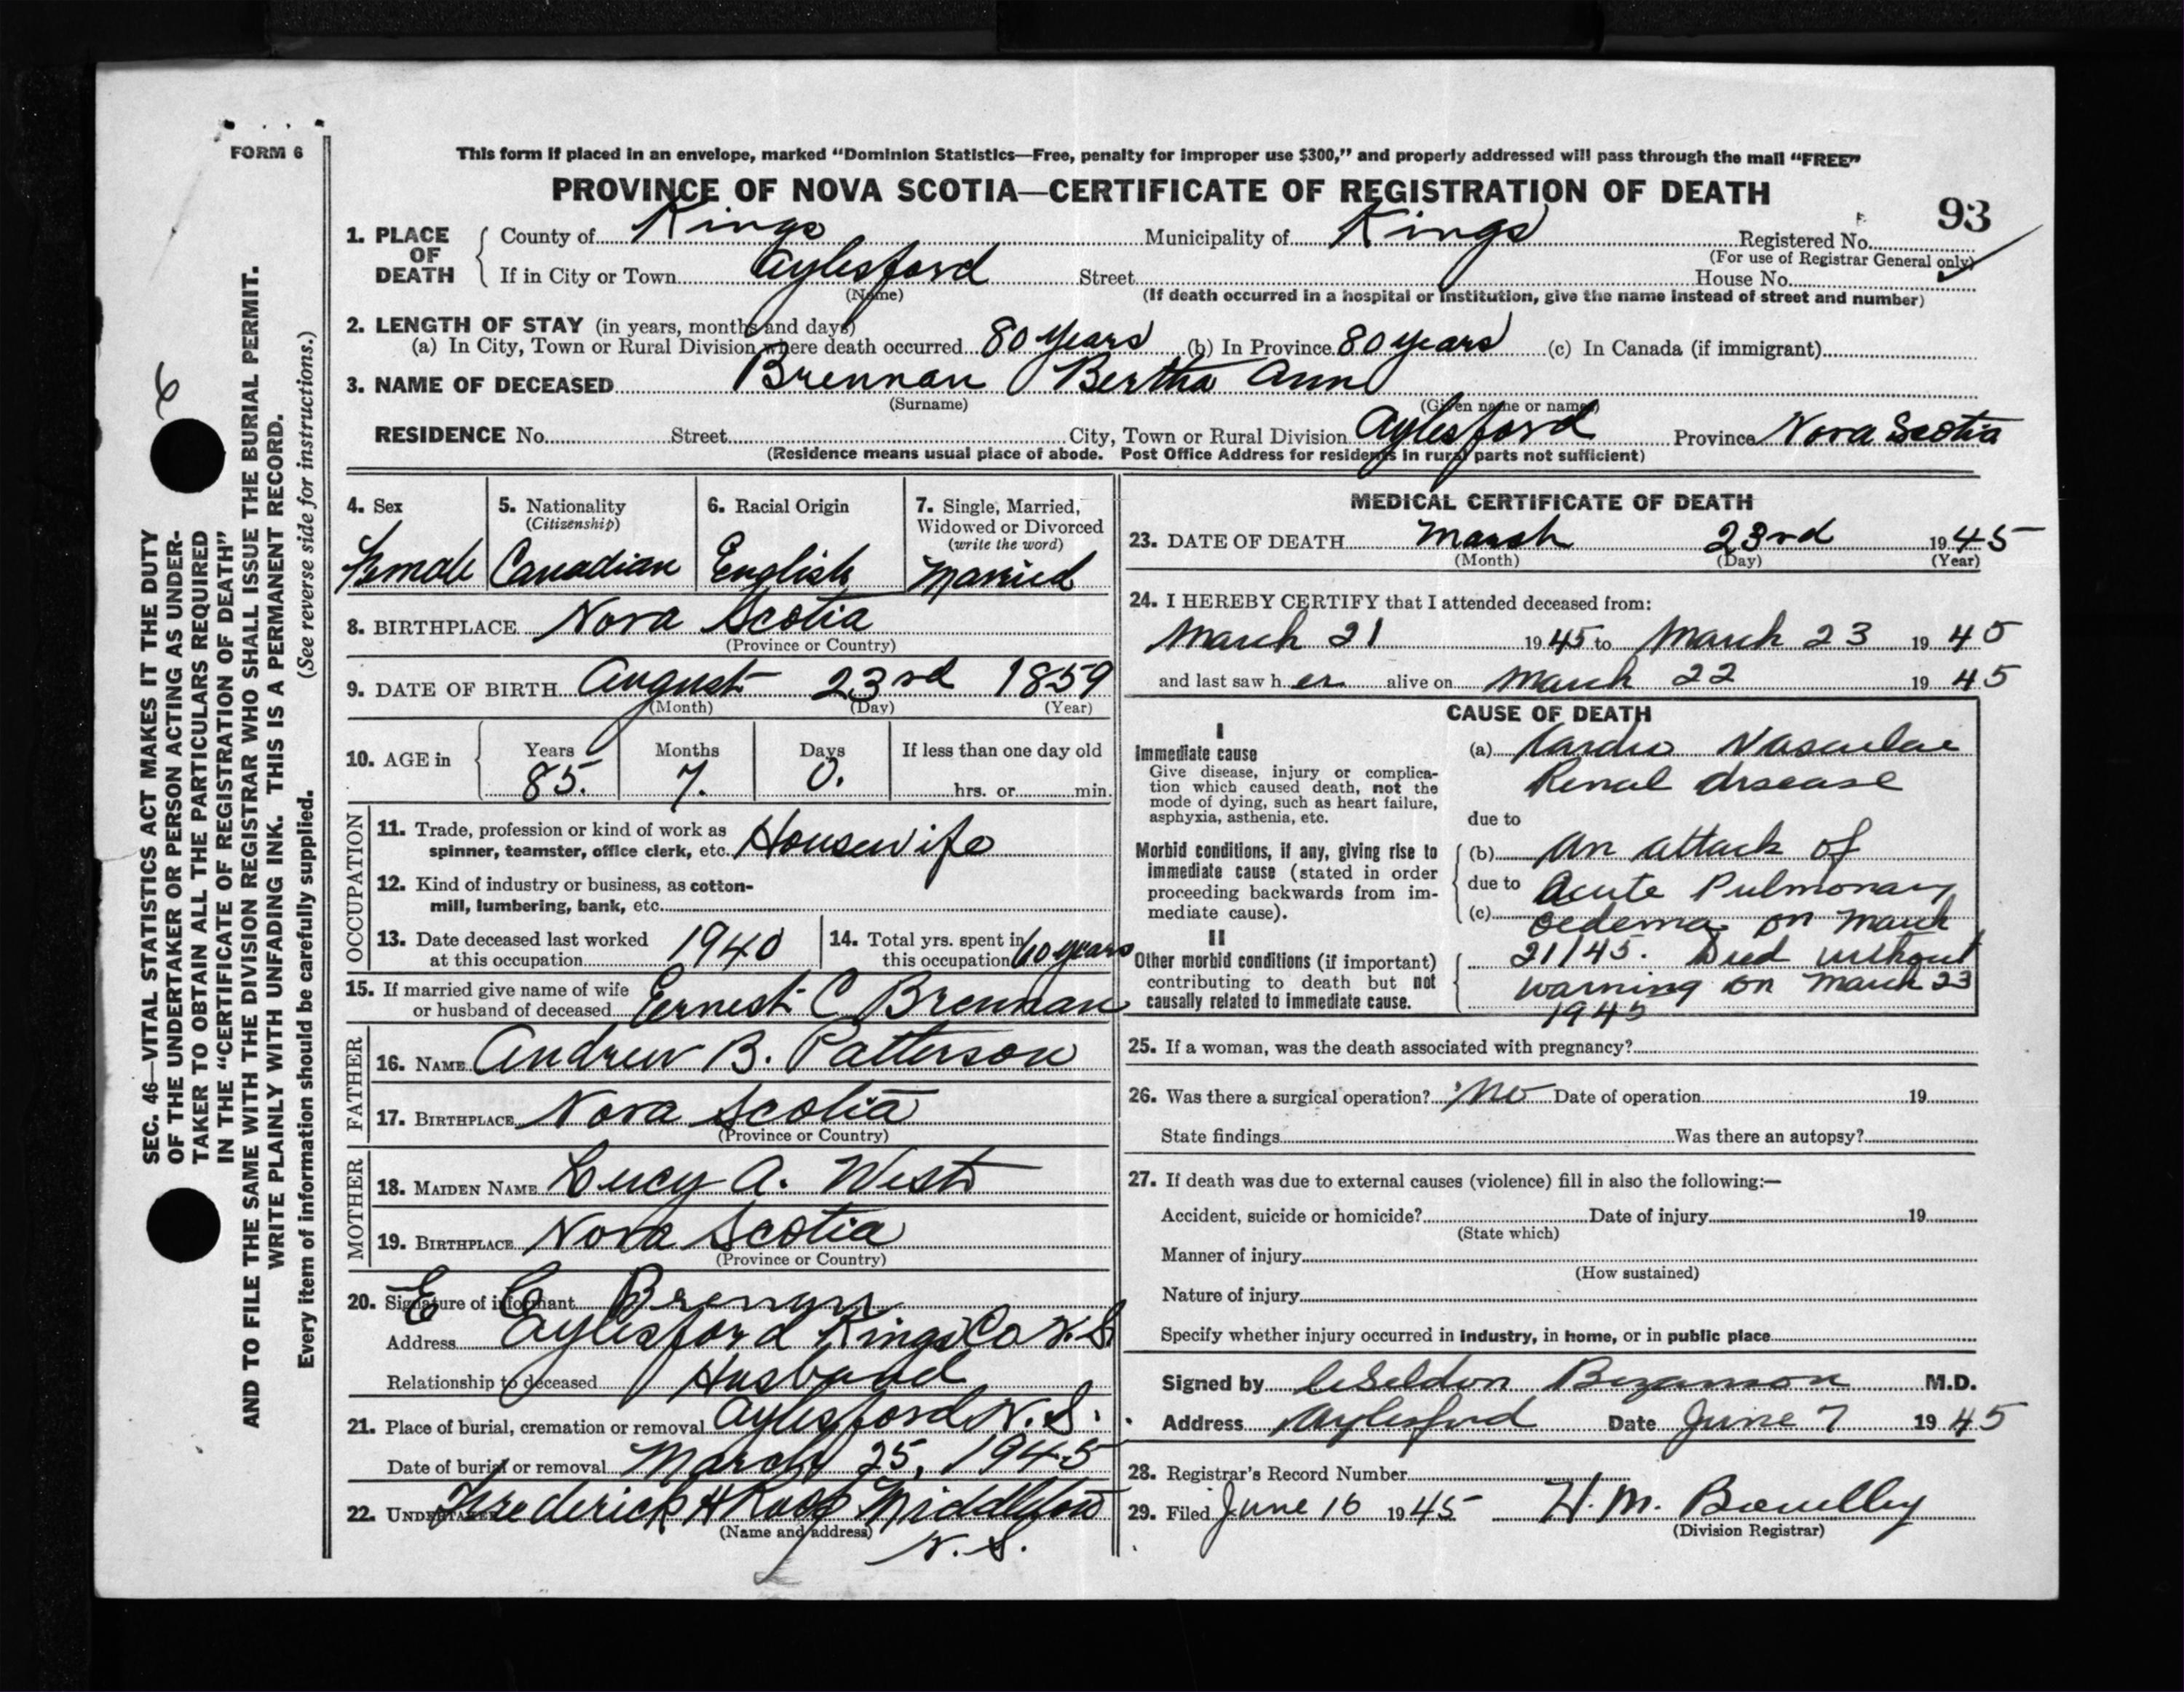 FORM 6
This form if placed in an envelope, marked "Dominion Statistics—Free, penalty for improper use $300," and properly addressed will pass through the mail "FREE"
PROVINCE OF NOVA SCOTIA—CERTIFICATE OF REGISTRATION OF DEATH
93
1. PLACE OF DEATH County of Kings Municipality of Kings Registered No.
(For use of Registrar General only)
If in City or Town Aylesford Street House No.
(Name) (If death occurred in a hospital or institution, give the name instead of street and number)
2. LENGTH OF STAY (in years, months and days)
(a) In City, Town or Rural Division where death occurred 80 years (b) In Province 80 years (c) In Canada (if immigrant)
3. NAME OF DECEASED Brennan Bertha Ann
(Surname) (Given name or names)
RESIDENCE No. Street City, Town or Rural Division Aylesford Province Nova Scotia
(Residence means usual place of abode. Post Office Address for residents in rural parts not sufficient)
4. Sex
Female
5. Nationality
(Citizenship)
Canadian
6. Racial Origin
English
7. Single, Married,
Widowed or Divorced
(write the word)
Married
8. BIRTHPLACE Nova Scotia
(Province or Country)
9. DATE OF BIRTH August 23rd 1859
(Month) (Day) (Year)
10. AGE in Years Months Days If less than one day old
85. 7. 0. hrs. or min.
OCCUPATION
11. Trade, profession or kind of work as
spinner, teamster, office clerk, etc. Housewife
12. Kind of industry or business, as cotton-
mill, lumbering, bank, etc.
13. Date deceased last worked
at this occupation 1940
14. Total yrs. spent in
this occupation 60 years
15. If married give name of wife
or husband of deceased Ernest C Brennan
FATHER
16. NAME Andrew B. Patterson
17. BIRTHPLACE Nova Scotia
(Province or Country)
MOTHER
18. MAIDEN NAME Lucy A. West
19. BIRTHPLACE Nova Scotia
(Province or Country)
20. Signature of informant E C Brennan
Address Aylesford Kings Co N.S.
Relationship to deceased Husband
21. Place of burial, cremation or removal Aylesford N.S.
Date of burial or removal March 25, 1945
22. UNDERTAKER Frederick H Middleton
(Name and address) N.S.
MEDICAL CERTIFICATE OF DEATH
23. DATE OF DEATH March 23rd 1945
(Month) (Day) (Year)
24. I HEREBY CERTIFY that I attended deceased from:
March 21 1945 to March 23 1945
and last saw her alive on March 22 1945
CAUSE OF DEATH
I
Immediate cause
Give disease, injury or complica-
tion which caused death, not the
mode of dying, such as heart failure,
asphyxia, asthenia, etc.
(a) Kardio Vascular
Renal disease
due to
Morbid conditions, if any, giving rise to
immediate cause (stated in order
proceeding backwards from im-
mediate cause).
(b) An attack of
due to Acute Pulmonary
(c) oedema on March
II
Other morbid conditions (if important)
contributing to death but not
causally related to immediate cause.
21/45. Died without
warning on March 23
1945
25. If a woman, was the death associated with pregnancy?
26. Was there a surgical operation? No Date of operation 19
State findings Was there an autopsy?
27. If death was due to external causes (violence) fill in also the following:—
Accident, suicide or homicide? Date of injury 19
(State which)
Manner of injury
(How sustained)
Nature of injury
Specify whether injury occurred in industry, in home, or in public place
Signed by M.D.
Address Aylesford Date June 7 1945
28. Registrar's Record Number
29. Filed June 16 1945 H. M.
(Division Registrar)
SEC. 46—VITAL STATISTICS ACT MAKES IT THE DUTY
OF THE UNDERTAKER OR PERSON ACTING AS UNDER-
TAKER TO OBTAIN ALL THE PARTICULARS REQUIRED
IN THE "CERTIFICATE OF REGISTRATION OF DEATH"
AND TO FILE THE SAME WITH THE DIVISION REGISTRAR WHO SHALL ISSUE THE BURIAL PERMIT.
WRITE PLAINLY WITH UNFADING INK. THIS IS A PERMANENT RECORD.
Every item of information should be carefully supplied. (See reverse side for instructions.)